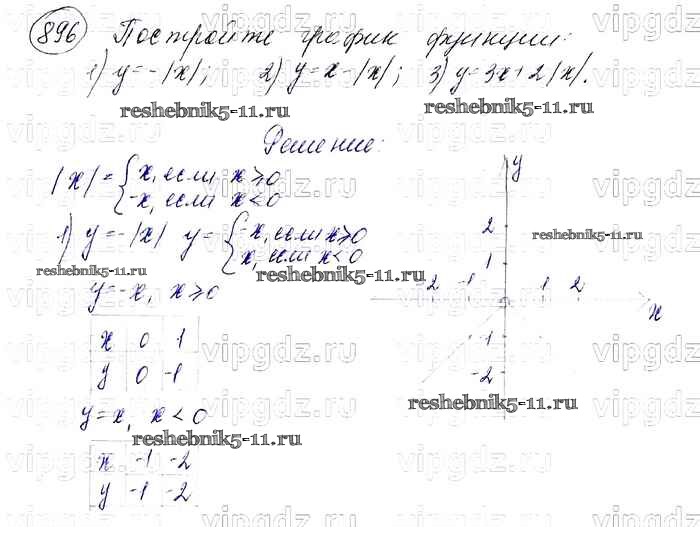 896 Постройте график функции:
1) y=-|x|; 2) y=x-|x|; 3) y=3x+2|x|.
reshebnik5-11.ru reshebnik5-11.ru
Решение:
|x|={x, если x⩾0
-x, если x<0
1) y=-|x| y={-x, если x⩾0
x, если x<0
reshebnik5-11.ru reshebnik5-11.ru
y=-x, x⩾0
x 0 1
y 0 -1
y=x, x<0
reshebnik5-11.ru
x -1 -2
y -1 -2
y
2
reshebnik5-11.ru
1
-2 -1 0 1 2
x
-1
-2
reshebnik5-11.ru
vipgdz.ru vipgdz.ru vipgdz.ru vipgdz.ru